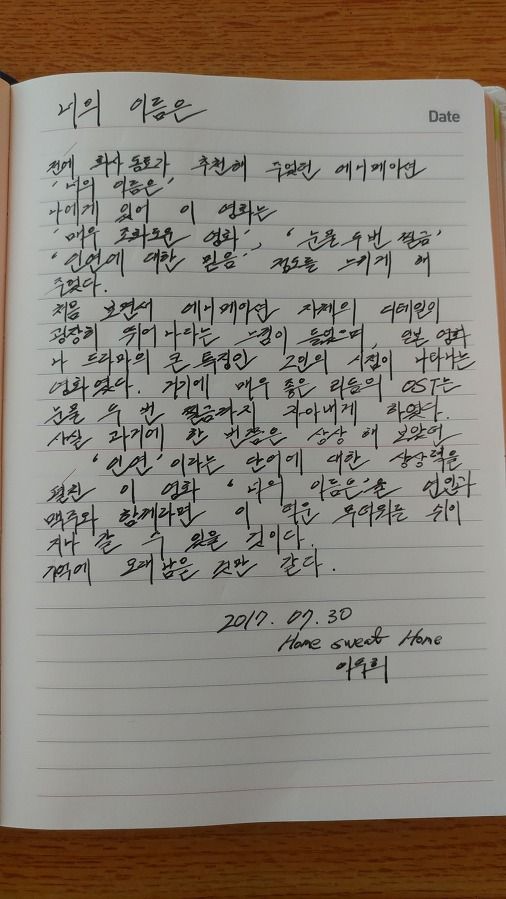 너의 이름은
Date
전에 회사 동료가 추천해 주었던 에니메이션
'너의 이름은'
나에게 있어 이 영화는
'매우 조화로운 영화', '눈물 두번 찔끔'
'인연에 대한 믿음' 정도를 느끼게 해
주었다.
처음 보면서 에니메이션 자체의 디테일이
굉장히 뛰어나다는 느낌이 들었으며, 일본 영화
나 드라마의 큰 특징인 2인의 시점이 나타나는
영화였다. 거기에 매우 좋은 리듬의 OST는
눈물 두 번 찔끔까지 자아내게 하였다.
사실 과거에 한 번쯤은 상상해 보았던
'인연'이라는 단어에 대한 상상력을
펼친 이 영화 '너의 이름은'은 연인과
맥주와 함께라면 이 더운 무더위는 쉬이
지나 갈 수 있을 것이다.
기억에 오래 남을 것만 같다.
2017. 07. 30
Home sweat Home